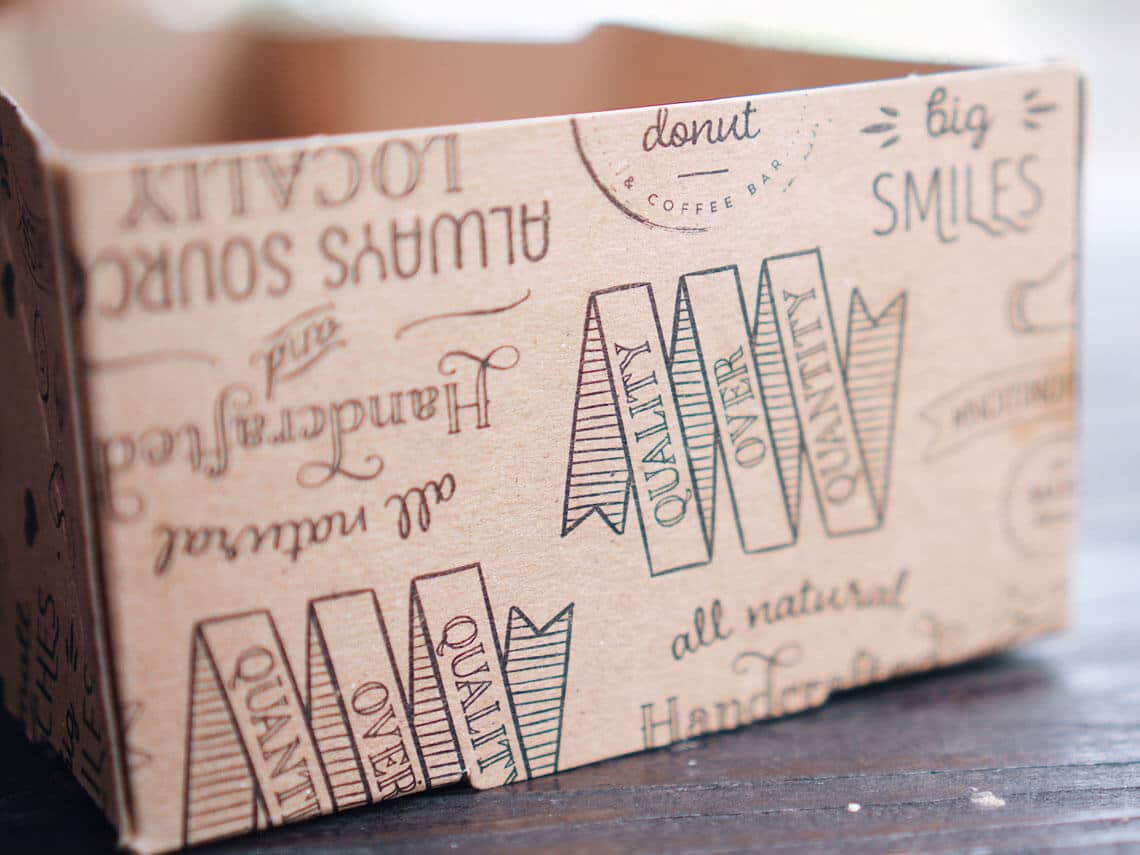 donut
& COFFEE BAR
big
SMILES
QUALITY
OVER
QUANTITY
all natural
Handcrafted
QUALITY
OVER
QUANTI
all natural
Handcrafted
and
ALWAYS SOURC
LOCALLY